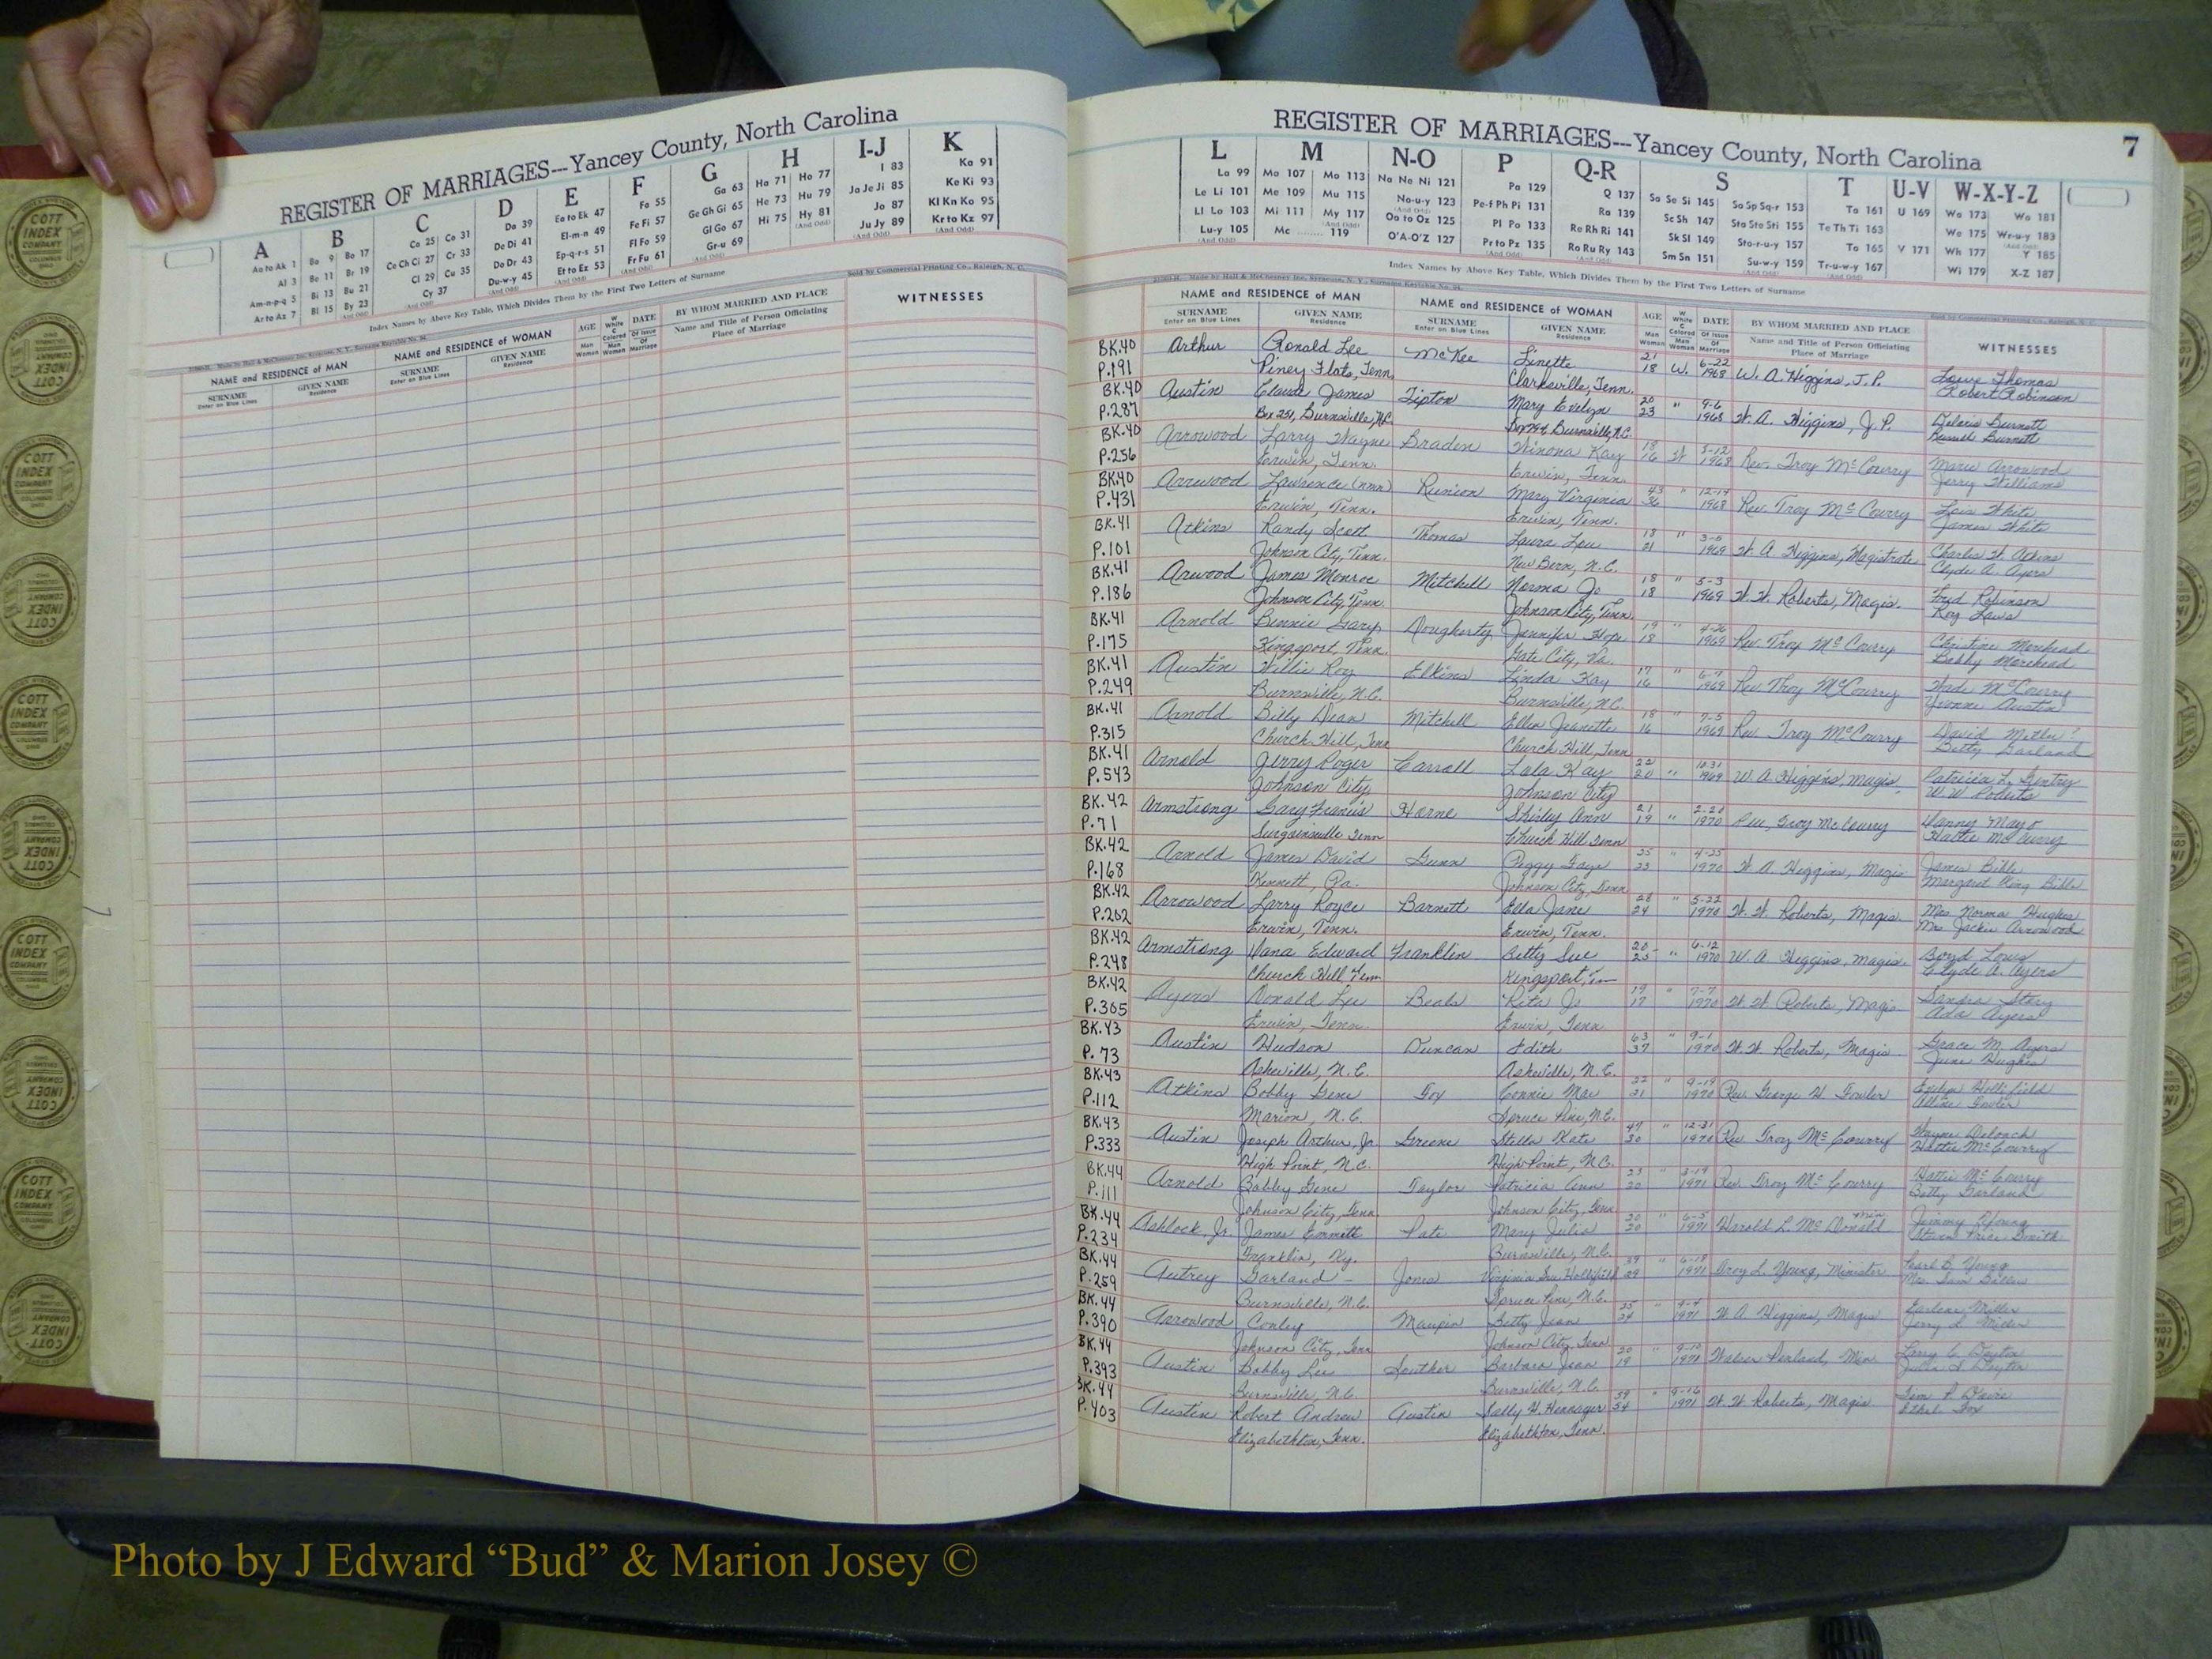 REGISTER OF MARRIAGES---Yancey County, North Carolina
A B C D E F G H I-J K
Aa to Ak 1
Al 3
Am-n-p-q 5
Ar to Az 7
Ba 9 Bo 17
Be 11 Br 19
Bi 13 Bu 21
Bl 15 By 23
Ca 25 Co 31
Ce Ch Ci 27 Cr 33
Cl 29 Cu 35
Cy 37
Da 39
De Di 41
Do Dr 43
Du-w-y 45
Ea to Ek 47
El-m-n 49
Ep-q-r-s 51
Et to Ez 53
Fa 55
Fe Fi 57
Fl Fo 59
Fr Fu 61
Ga 63
Ge Gh Gi 65
Gl Go 67
Gr-u 69
Ha 71 Ho 77
He 73 Hu 79
Hi 75 Hy 81
I 83
Ja Je Ji 85
Jo 87
Ju Jy 89
Ka 91
Ke Ki 93
Kl Kn Ko 95
Kr to Kz 97
Index Names by Above Key Table, Which Divides Them by the First Two Letters of Surname
Sold by Commercial Printing Co., Raleigh, N. C.
NAME and RESIDENCE of MAN
SURNAME
Enter on Blue Lines
GIVEN NAME
Residence
NAME and RESIDENCE of WOMAN
SURNAME
Enter on Blue Lines
GIVEN NAME
Residence
AGE
Man
Woman
W White
C Colored
Man
Woman
DATE
Of Issue
Of Marriage
BY WHOM MARRIED AND PLACE
Name and Title of Person Officiating
Place of Marriage
WITNESSES
REGISTER OF MARRIAGES---Yancey County, North Carolina
7
L M N-O P Q-R S T U-V W-X-Y-Z
La 99
Le Li 101
Ll Lo 103
Lu-y 105
Ma 107 Mo 113
Me 109 Mu 115
Mi 111 My 117
Mc 119
Na Ne Ni 121
No-u-y 123
Oa to Oz 125
O'A-O'Z 127
Pa 129
Pe-f Ph Pi 131
Pl Po 133
Pr to Pz 135
Q 137
Ra 139
Re Rh Ri 141
Ro Ru Ry 143
Sa Se Si 145 So Sp Sq-r 153
Sc Sh 147 Sta Ste Sti 155
Sk Sl 149 Sto-r-u-y 157
Sm Sn 151 Su-w-y 159
Ta 161
Te Th Ti 163
To 165
Tr-u-w-y 167
U 169
V 171
Wa 173 Wo 181
We 175 Wr-u-y 183
Wh 177 Y 185
Wi 179 X-Z 187
Index Names by Above Key Table, Which Divides Them by the First Two Letters of Surname
NAME and RESIDENCE of MAN
SURNAME
Enter on Blue Lines
GIVEN NAME
Residence
NAME and RESIDENCE of WOMAN
SURNAME
Enter on Blue Lines
GIVEN NAME
Residence
AGE
Man
Woman
W White
C Colored
Man
Woman
DATE
Of Issue
Of Marriage
BY WHOM MARRIED AND PLACE
Name and Title of Person Officiating
Place of Marriage
WITNESSES
BK.40 Arthur Ronald Lee McKee Linette 21 6-22 Louve Thomas
P.191 Piney Flats, Tenn. Clarksville, Tenn. 18 W. 1968 W. A. Higgins, J. P. Robert Robinson
BK.40 Austin Claude James Tipton Mary Evelyn 20 " 9-6 Deloris Burnett
P.287 Box 251, Burnsville, N.C. Burnsville, N.C. 23 1968 W. A. Higgins, J. P. Russell Burnett
BK.40 Arrowood Larry Wayne Braden Winona Kay 18
P.256 Erwin, Tenn. Erwin, Tenn. 16 W 1968 Rev. Troy McCourry Marie Arrowood Jerry Williams
BK.40 Arrwood Lawrence (nmn) Runion Mary Virginia 43 " 12-14 Lois White
P.431 Erwin, Tenn. Erwin, Tenn. 36 1968 Rev. Troy McCourry James White
BK.41 Atkins Randy Scott Thomas Laura Lou 18 " 3-5 Charles W. Atkins
P.101 Johnson City, Tenn. New Bern, N.C. 21 1969 W. A. Higgins, Magistrate Clyde A. Ayers
BK.41 Arwood James Monroe Mitchell Norma Jo 18 " 5-3 Fred Robinson
P.186 Johnson City, Tenn. Johnson City, Tenn. 18 1969 W. W. Roberts, Magis. Roy Laws
BK.41 Arnold Bennie Gary Dougherty Jennifer Hope 19 " 4-26 Christine Morehead
P.175 Kingsport, Tenn. Gate City, Va. 18 1969 Rev. Troy McCourry Bobby Morehead
BK.41 Austin Willie Roy Elkins Linda Kay 17 " 6-7 Wade McCourry
P.249 Burnsville, N.C. Burnsville, N.C. 16 1969 Rev. Troy McCourry Yvonne Austin
BK.41 Arnold Billy Dean Mitchell Ellen Jeanette 18 " 7-5 David
P.315 Church Hill, Tenn Church Hill, Tenn 16 1969 Rev. Troy McCourry Betty Garland
BK.41 Arnold Jerry Roger Carroll Lola Kay 22 10-31 Patricia L. Gentry
P.543 Johnson City Johnson City 20 " 1969 W. A. Higgins, Magis. W. W. Roberts
BK.42 Armstrong Gary Francis Horne Shirley Ann 21 2-28 Danny Mayo
P.71 Surgoinsville Tenn Church Hill Tenn 19 " 1970 Rev. Troy McCourry Hattie McCurry
BK.42 Arnold James David Gunn Peggy Faye 25 " 4-25 James Bible
P.168 Kennett, Pa. Johnson City, Tenn 23 1970 W. A. Higgins, Magis Margaret King Bible
BK.42 Arrowood Larry Royce Barnett Ella Jane 28 5-22 Mrs. Norma Hughes
P.202 Erwin, Tenn. Erwin, Tenn. 24 " 1970 W. W. Roberts, Magis. Mrs. Jackie Arrowood
BK.42 Armstrong Dana Edward Franklin Betty Sue 20 6-12 Boyd Lewis
P.248 Church Hill Tenn Kingsport, Tn 25 " 1970 W. A. Higgins, Magis. Clyde A. Ayers
BK.42 Ayers Donald Lee Beals Rita Jo 19 " 7-7 Sandra Story
P.305 Erwin, Tenn. Erwin, Tenn 17 1970 W. W. Roberts, Magis. Ada Ayers
BK.43 Austin Hudson Duncan Edith 63 " 9-1 Grace M. Ayers
P. 73 Asheville, N.C. Asheville, N.C. 37 1970 W. W. Roberts, Magis. June Hughes
BK.43 Atkins Bobby Gene Fox Connie Mae 22 " 9-19 Evelyn Hollifield
P.112 Marion, N.C. Spruce Pine, N.C. 21 1970 Rev. George H. Fowler Alline Fowler
BK.43 Austin Joseph Arthur, Jr. Greene Stella Kate 47 " 12-31 Wayne Deloach
P.333 High Point, N.C. High Point, N.C. 30 1970 Rev. Troy McCourry Hattie McCourry
BK.44 Arnold Bobby Gene Taylor Patricia Ann 23 " 3-19 Hattie McCourry
P.111 Johnson City, Tenn Johnson City, Tenn 20 1971 Rev. Troy McCourry Betty Garland
BK.44 Ashlock, Jr. James Emmett Pate Mary Julia 20 " 6-5 Jimmy D Young
P.234 Franklin, Ky. Burnsville, N.C. 20 1971 Harold L. McDonald Min. Price Smith
BK.44 Autrey Garland - Jones Virginia Sue Hollifield 39 " 6-18 Pearl B. Young
P.259 Burnsville, N.C. Spruce Pine, N.C. 29 1971 Troy L. Young, Minister
BK.44 Arrowood Conley Maupin Betty Jean 25 " 9-4 Earlene Miller
P.390 Johnson City, Tenn Johnson City, Tenn 24 1971 W. A. Higgins, Magis Jerry L. Miller
BK.44 Austin Bobby Lee Souther Barbara Jean 20 " 9-10 Larry C. Peyton
P.393 Burnsville, N.C. Burnsville, N.C. 19 1971 Min
BK.44 Austin Robert Andrew Austin Sally H. Hennager 59 " 9-16 Jim P. Davis
P.403 Elizabethton, Tenn. Elizabethton, Tenn. 54 1971 W. W. Roberts, Magis Ethel Fox
COTT INDEX COMPANY
Photo by J Edward “Bud” & Marion Josey ©